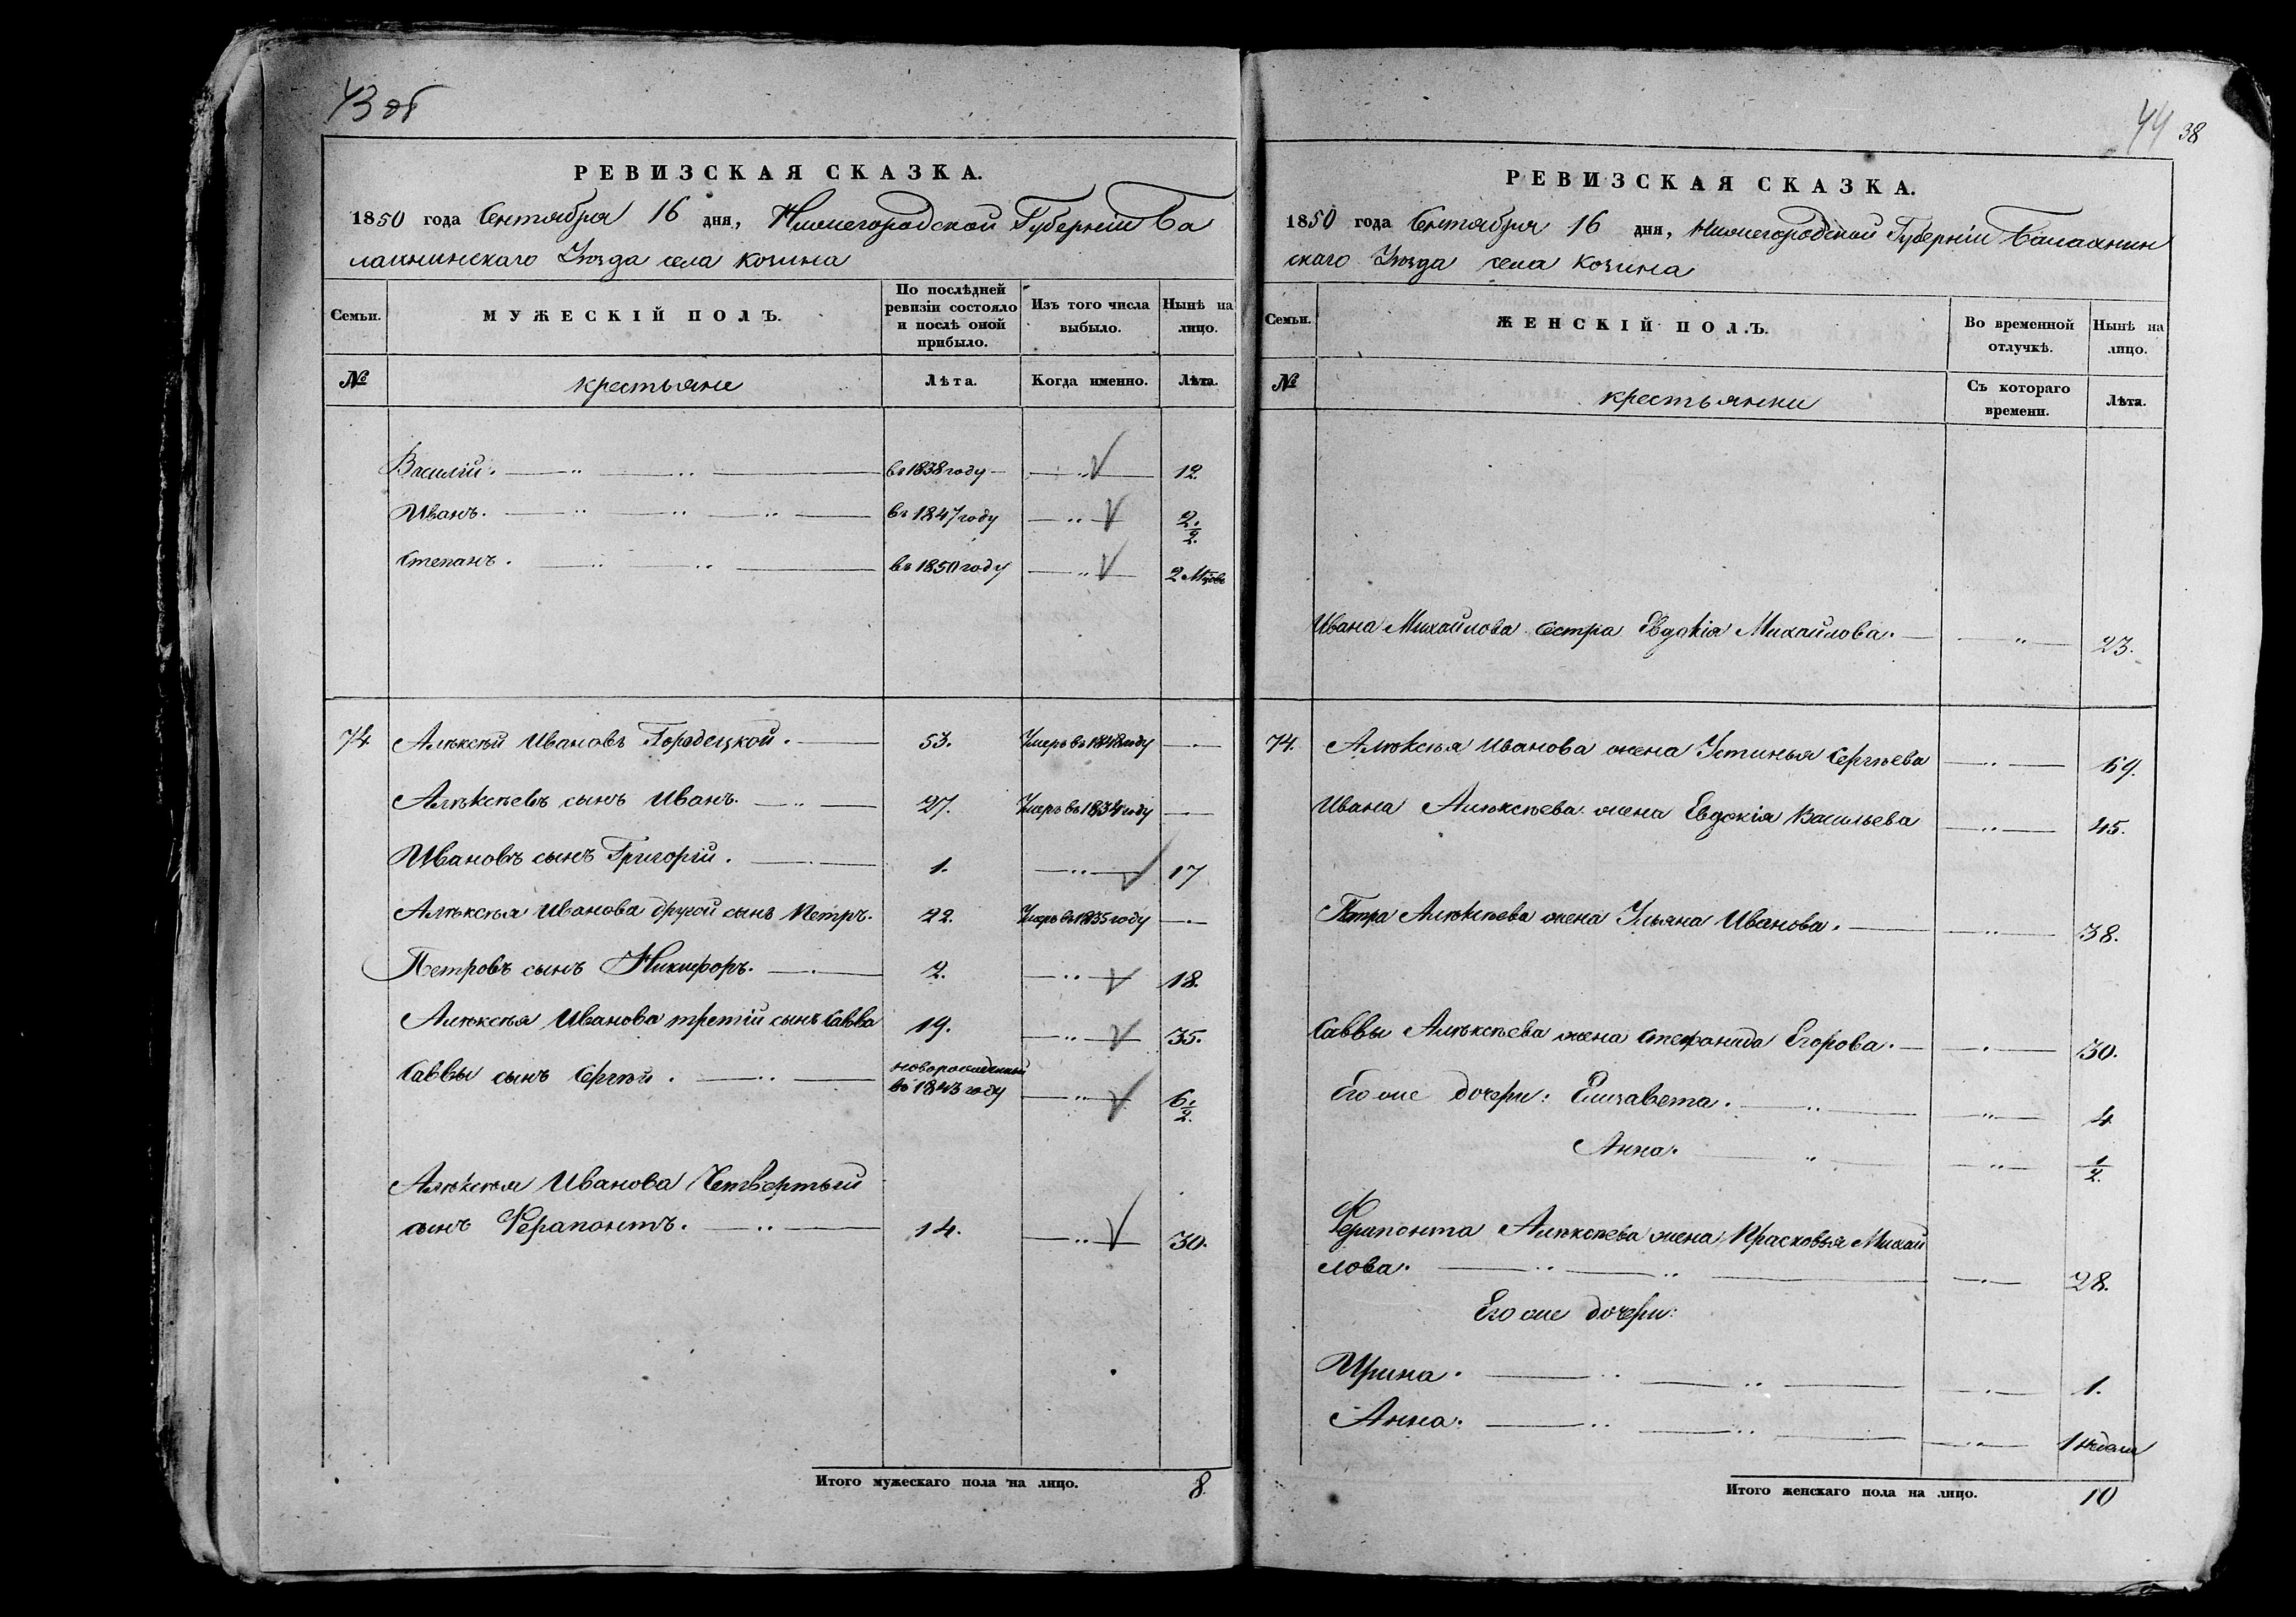 43 об
РЕВИЗСКАЯ СКАЗКА.
1850 года Сентября 16 дня, Нижегородской Губерніи Ба
лахнинскаго Уѣзда села Козина
Семьи.
МУЖЕСКІЙ ПОЛЪ.
По послѣдней ревизіи состояло и послѣ оной прибыло.
Изъ того числа выбыло.
Нынѣ на лицо.
№ крестьяне Лѣта. Когда именно. Лѣта.
Василій. в 1838 году 12.
Иванъ. въ 1847 году 2. 1/2.
Степанъ. въ 1850 году 2 Мѣсѣ
74 Алѣксѣй Ивановъ Городецкой. 53. Умеръ въ 1848 году
Алѣксѣевъ сынъ Иванъ. 27. Умеръ въ 1834 году
Ивановъ сынъ Григорій. 1. 17
Алѣксѣя Иванова другой сынъ Петръ. 22. Умеръ въ 1835 году
Петровъ сынъ Никифоръ. 2. 18.
Алѣксѣя Иванова третій сынъ Савва 19. 35.
Саввы сынъ Сергѣй. новорожденный
въ 1843 году 6. 1/2.
Алѣксѣя Иванова Четвертый
сынъ Ферапонтъ. 14. 30.
Итого мужескаго пола на лицо. 8.
44 38
РЕВИЗСКАЯ СКАЗКА.
1850 года Сентября 16 дня, Нижегородской Губерніи Балахнин
скаго Уѣзда села Козина
Семьи.
ЖЕНСКІЙ ПОЛЪ.
Во временной отлучкѣ.
Нынѣ на лицо.
№ крестьянки Съ котораго времени. Лѣта.
Ивана Михайлова сестра Евдокія Михайлова. 23.
74. Алѣксѣя Иванова жена Устинья Сергѣева 69.
Ивана Алѣксѣева жена Евдокія Васильева 45.
Петра Алѣксѣева жена Ульяна Иванова. 38.
Саввы Алѣксѣева жена Стефанида Егорова. 30.
Его же дочери: Елизавета. 4
Анна. 1/2.
Ферапонта Алѣксѣева жена Прасковья Михай
лова. 28.
Его же дочери:
Ирина. 1.
Анна. 1 недели
Итого женскаго пола на лицо. 10